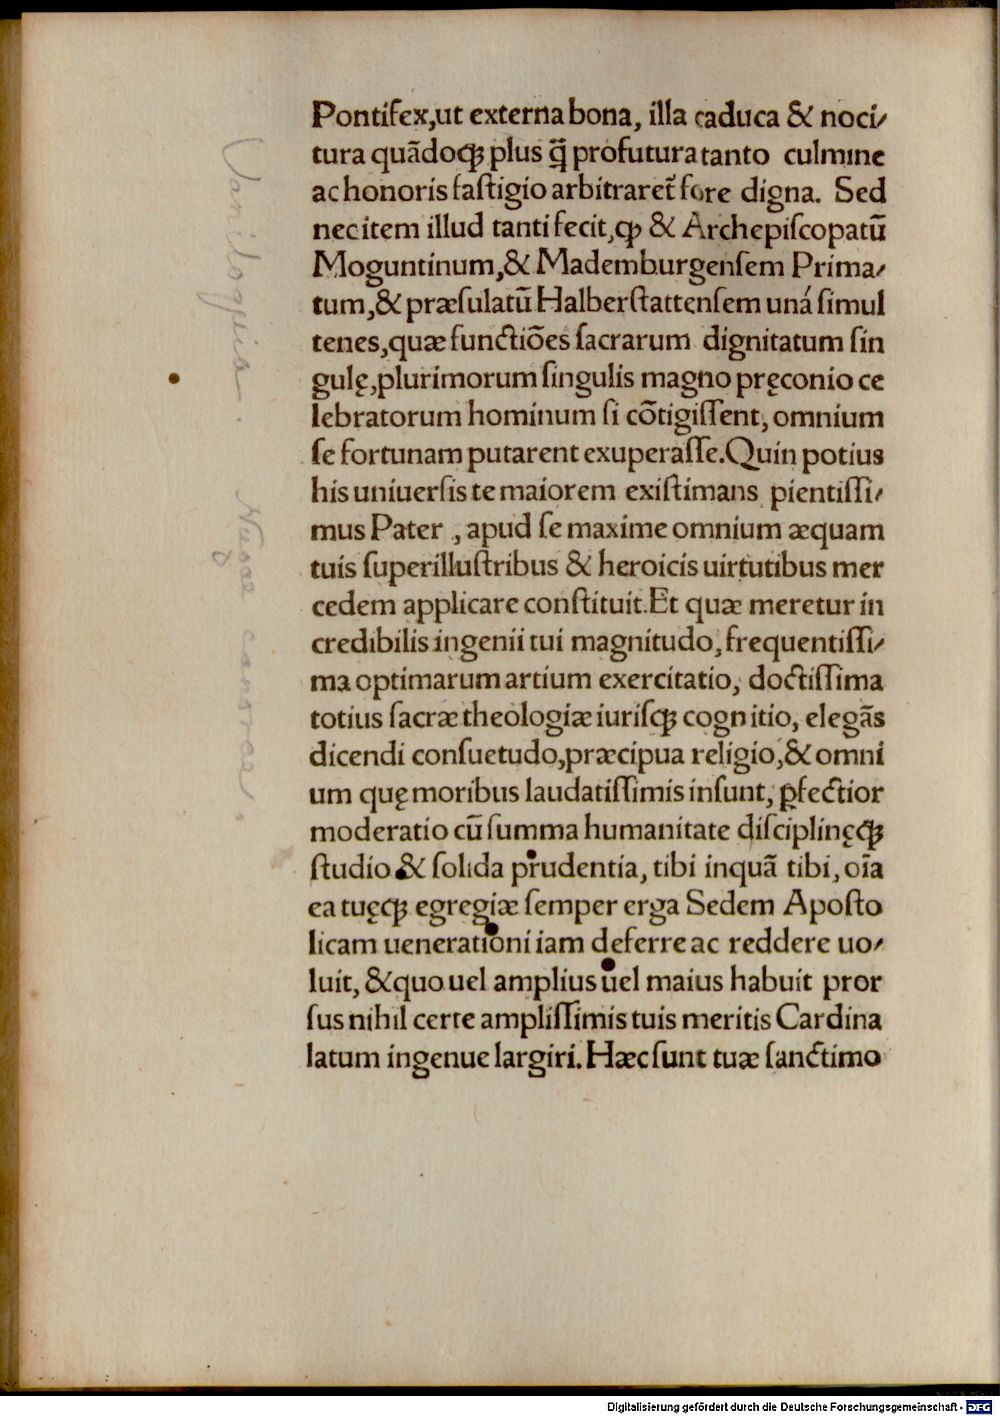 Pontifex,ut externa bona, illa caduca & noci⸗
tura quādoqꝫ plus q̄ꝫ profutura tanto culmine
ac honoris faſtigio arbitraret̃ fore digna. Sed
nec item illud tanti fecit,ꝙ & Archepiſcopatū
Moguntinum,& Mademburgenſem Prima⸗
tum,& præſulatū Halberſtattenſem uná ſimul
tenes,quæ functiōes ſacrarum dignitatum ſin
gulę,plurimorum ſingulis magno pręconio ce
lebratorum hominum ſi cōtigiſſent, omnium
ſe fortunam putarent exuperaſſe.Quin potius
his uniuerſis te maiorem exiſtimans pientiſſi⸗
mus Pater , apud ſe maxime omnium æquam
tuis ſuperilluſtribus & heroicis uirtutibus mer
cedem applicare conſtituit.Et quæ meretur in
credibilis ingenii tui magnitudo,frequentiſſi⸗
ma optimarum artium exercitatio, doctiſſima
totius ſacræ theologiæ iuriſqꝫ cognitio, elegās
dicendi conſuetudo,præcipua religio,& omni
um quę moribus laudatiſſimis inſunt, ꝑfectior
moderatio cū ſumma humanitate diſciplinęqꝫ
ſtudio & ſolida prudentia, tibi inquā tibi, oīa
ea tuęqꝫ egregiæ ſemper erga Sedem Apoſto
licam uenerationi iam deferre ac reddere uo⸗
luit, & quo uel amplius uel maius habuit pror
ſus nihil certe ampliſſimis tuis meritis Cardina
latum ingenue largiri. Hæc ſunt tuæ ſanctimo
Vaniloquia. Nugae canorae.
Digitalisierung gefördert durch die Deutsche Forschungsgemeinschaft - DFG